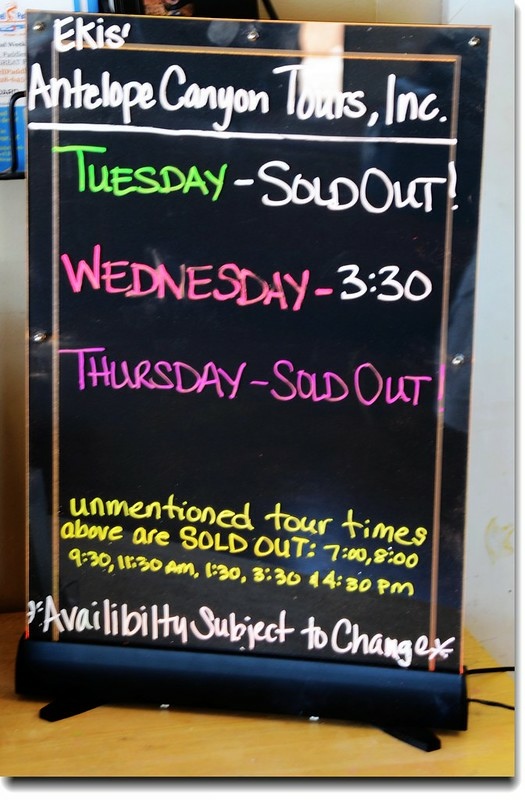 EKIS'
Antelope Canyon Tours, Inc.
TUESDAY - SOLD OUT!
WEDNESDAY - 3:30
THURSDAY - SOLD OUT!
unmentioned tour times
above are SOLD OUT: 7:00, 8:00
9:30, 11:30 AM, 1:30, 3:30 & 4:30 PM
*Availibilty Subject to Change*